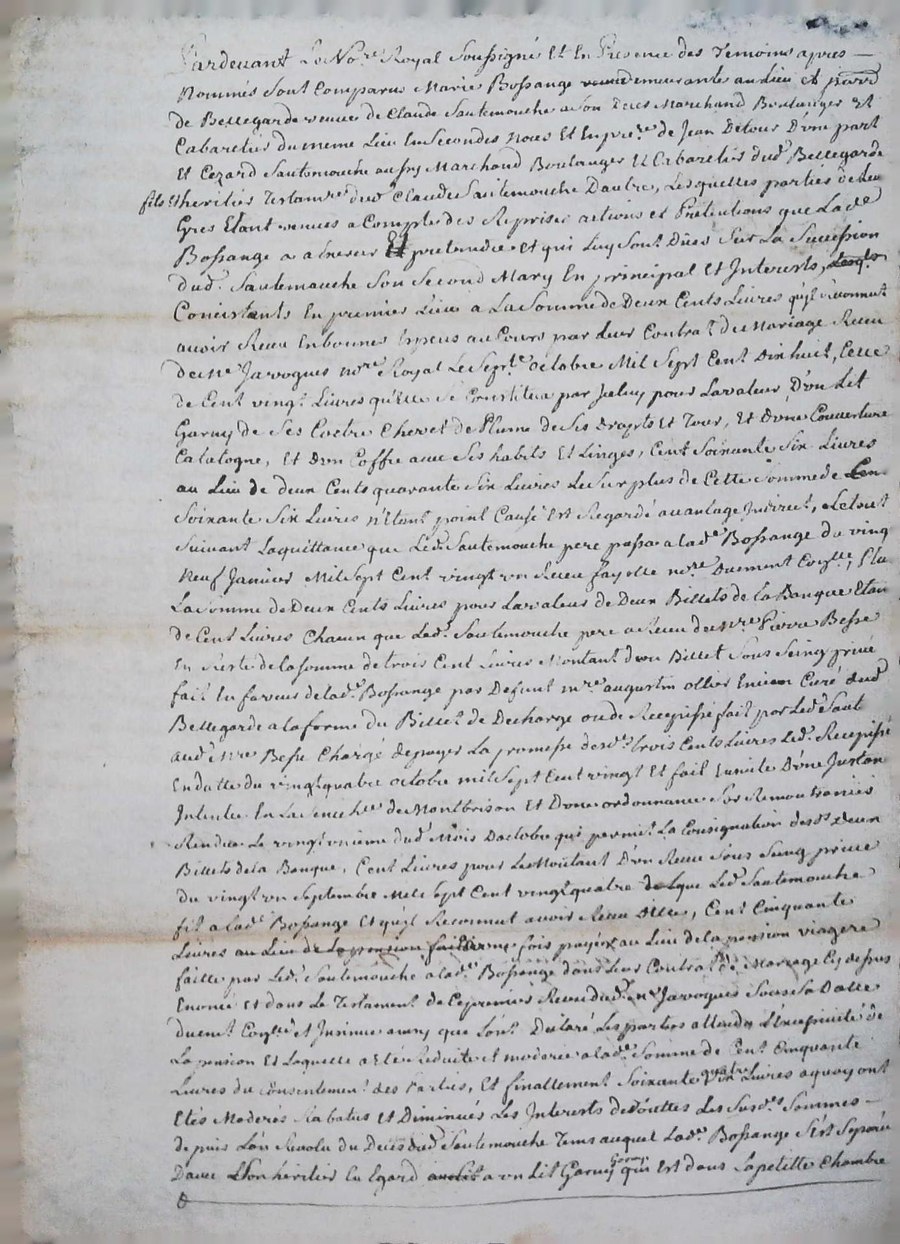 Pardevant Le No.re Royal Soussigné Et En Présence des Temoins apres —
Nommés Sont Comparus Marie Bossange demeurante au Lieu et
de Bellegarde veuve de Claude Sautemouche a Son Marchand Boulanger Et
Cabaretier du meme Lieu En Secondes Noces Et En pre.re de Jean Detour D'une part
Et Cezard Sautemouche aussy Marchand Boulanger Et Cabaretier dud.t Bellegarde
fils Et heritier Testam.re dud Claude Sautemouche Dautre, Lesquelles parties de Leu
Gres Etant venues a Compte des Reprises actions et Prétentions que Lad.e
Bossange a a dresser Et pretendre et qui Luy Sont Dües Sur La Succession
dud. Sautemouche Son Second Mary En principal Et Interests,
Concistants En premier Lieu a La Somme de Deux Cents Livres qu'il reconnut
avoir Receu En bonnes Especes au Cours par Leur Contrat de Mariage Receu
de Me Jarvogues no.re Royal Le Sept.e octobre Mil Sept Cent Dix huit, Celle
de Cent vingt Livres qu'Elle Se Constitua par Jceluy pour La valeur D'un Lit
Garny de Ses Coetre Chevet de Plume de Ses Drapts et Tour, Et D'une Couverture
Catalogne, Et D'un Coffre avec Ses habits Et Linges, Cent Soixante Six Livres
au Lieu de deux Cents quarante Six Livres Le Surplus de Cette Somme de Cen
Soixante Six Livres n'Etant point Causé Est Regardé avantage Indirect, Le tout
Suivant La quittance que Led.t Sautemouche pere passa a lad.e Bossange du ving
Neuf Janvier Mil Sept Cent vingt un Receu fayolle no.re Duement Con.llé, Plu
La Somme de Deux Cents Livres pour La valeur de Deux Billets de la Banque Etan
de Cent Livres Chacun que Led.t Sautemouche pere a Receu de M.re Pierre Besse
En Reste de la Somme de trois Cent Livres Montant d'un Billet Sous Seing privé
fait En faveur de lad.e Bossange par Defunt M.re augustin ollier Curé dud.t
Bellegarde a la forme du Billet de Decharge ou de Recepissé fait par Led.t Saut
aud.t M.re Besse Chargé de payer La promesse des d.s trois Cents Livres Led.t Recepissé
En datte du vingt quatre octobre mil Sept Cent vingt Et fait En suite D'une Jnstan
Intentée En La Senech.ée de Montbrison Et D'une ordonnance Sur Remontrances
Rendue Le vingt unieme dud.t Mois D'octobre qui permit La Consignation desd.s Deux
Billets de la Banque, Cent Livres pour Le Montant D'un Receu Sous Seing privé
du vingt un Septembre Mil Sept Cent vingt quatre que Led.t Sautemouche
fit a lad.e Bossange Et qu'il Reconnut avoir Receu D'Elle, Cent Cinquante
Livres au Lieu de La pension fois payée au Lieu de la pension viagere
faitte par Led.t Sautemouche a lad.e Bossange dans Leur Contrat de Mariage Cy dessus
Enoncé Et dans Le Testament de Ce premier Receu dud.t M.e Jarvogues Sous Sa Datte
duement Con.llé Et Insinué ainsy que L'ont Declaré Les parties attendu L'Excessivité de
La pension Et Laquelle a Eté reduite et moderée a lad.e Somme de Cent Cinquante
Livres du Consentement des Parties, Et finallement Soixante quatre Livres a quoy ont
Etés Moderés Rabatus Et Diminués Les Interests de touttes Les Susd.es Sommes —
depuis L'an Revolu du Deces dud.t Sautemouche Tems auquel Lad.e Bossange S'est Separée
Davec L'Son heritier En Egard a un Lit Garny qui Est dans La petitte Chambre